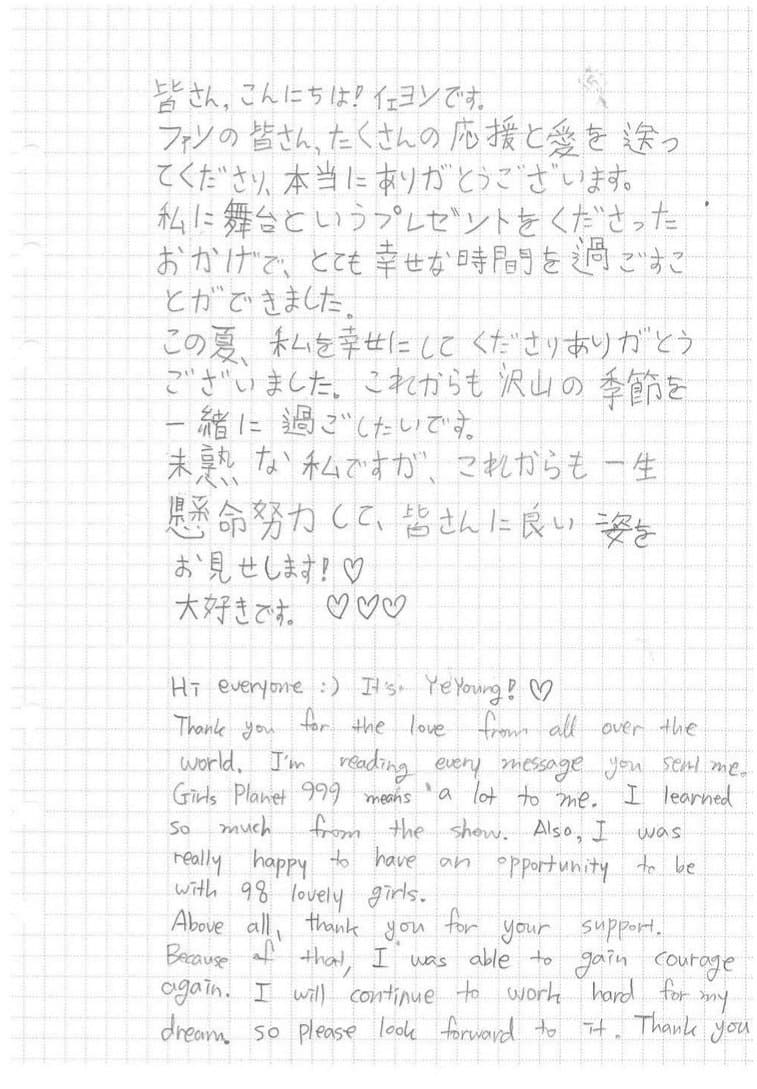 皆さん、こんにちは! イェヨンです。
ファンの皆さん、たくさんの応援と愛を送っ
てくださり、本当にありがとうございます。
私に舞台というプレゼントをくださった
おかげで、とても幸せな時間を過ごすこ
とができました。
この夏、私を幸せにしてくださりありがとう
ございました。これからも沢山の季節を
一緒に過ごしたいです。
未熟な私ですが、これからも一生
懸命努力して、皆さんに良い姿を
お見せします! ♡
大好きです。 ♡♡♡
Hi everyone :) It's YeYoung! ♡
Thank you for the love from all over the
world. I'm reading every message you sent me.
Girls Planet 999 means a lot to me. I learned
so much from the show. Also, I was
really happy to have an opportunity to be
with 98 lovely girls.
Above all, thank you for your support.
Because of that, I was able to gain courage
again. I will continue to work hard for my
dream. so please look forward to it. Thank you